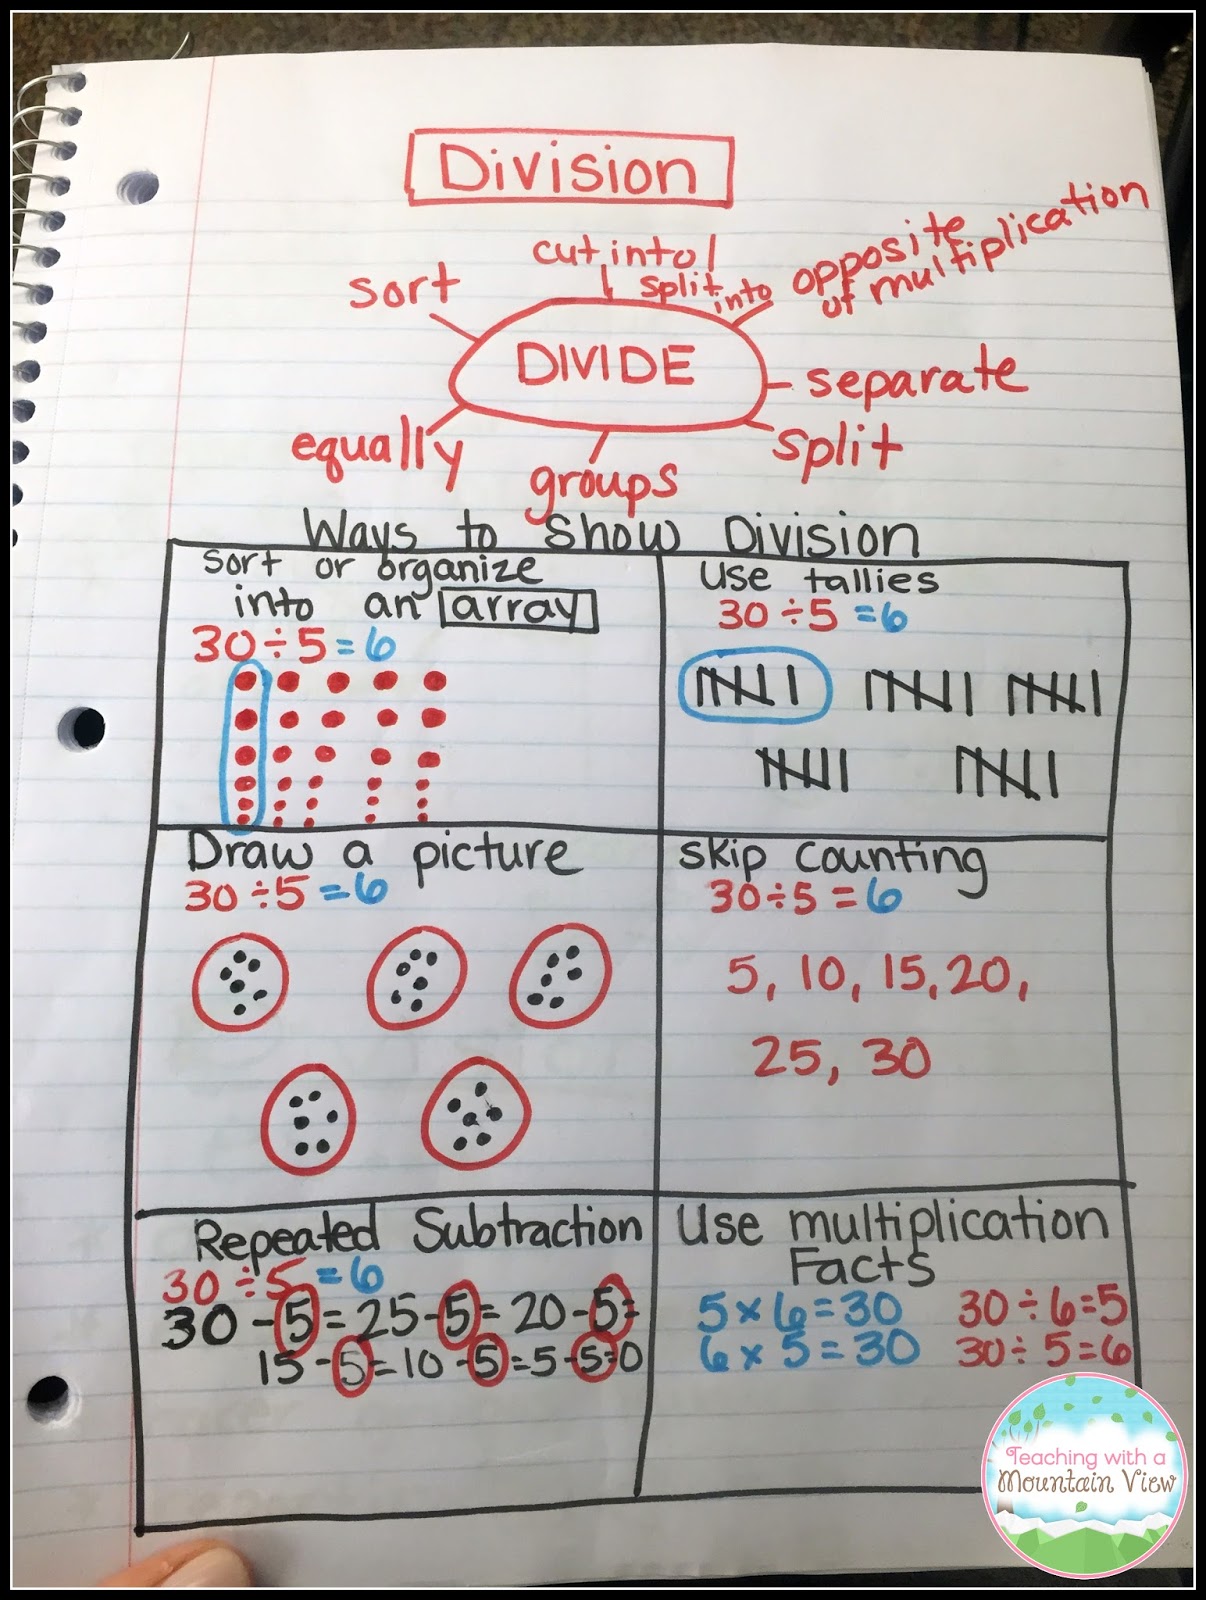 Division
cut into
split into
opposite
of multiplication
sort
DIVIDE
separate
equally
groups
split
Ways to Show Division
Sort or organize
into an array
30÷5=6
Use tallies
30÷5=6
Draw a picture
30÷5=6
Skip Counting
30÷5=6
5, 10, 15, 20,
25, 30
Repeated Subtraction
30÷5=6
30-5=25-5=20-5=
15-5=10-5=5-5=0
Use multiplication
Facts
5×6=30 30÷6=5
6×5=30 30÷5=6
Teaching with a
Mountain View